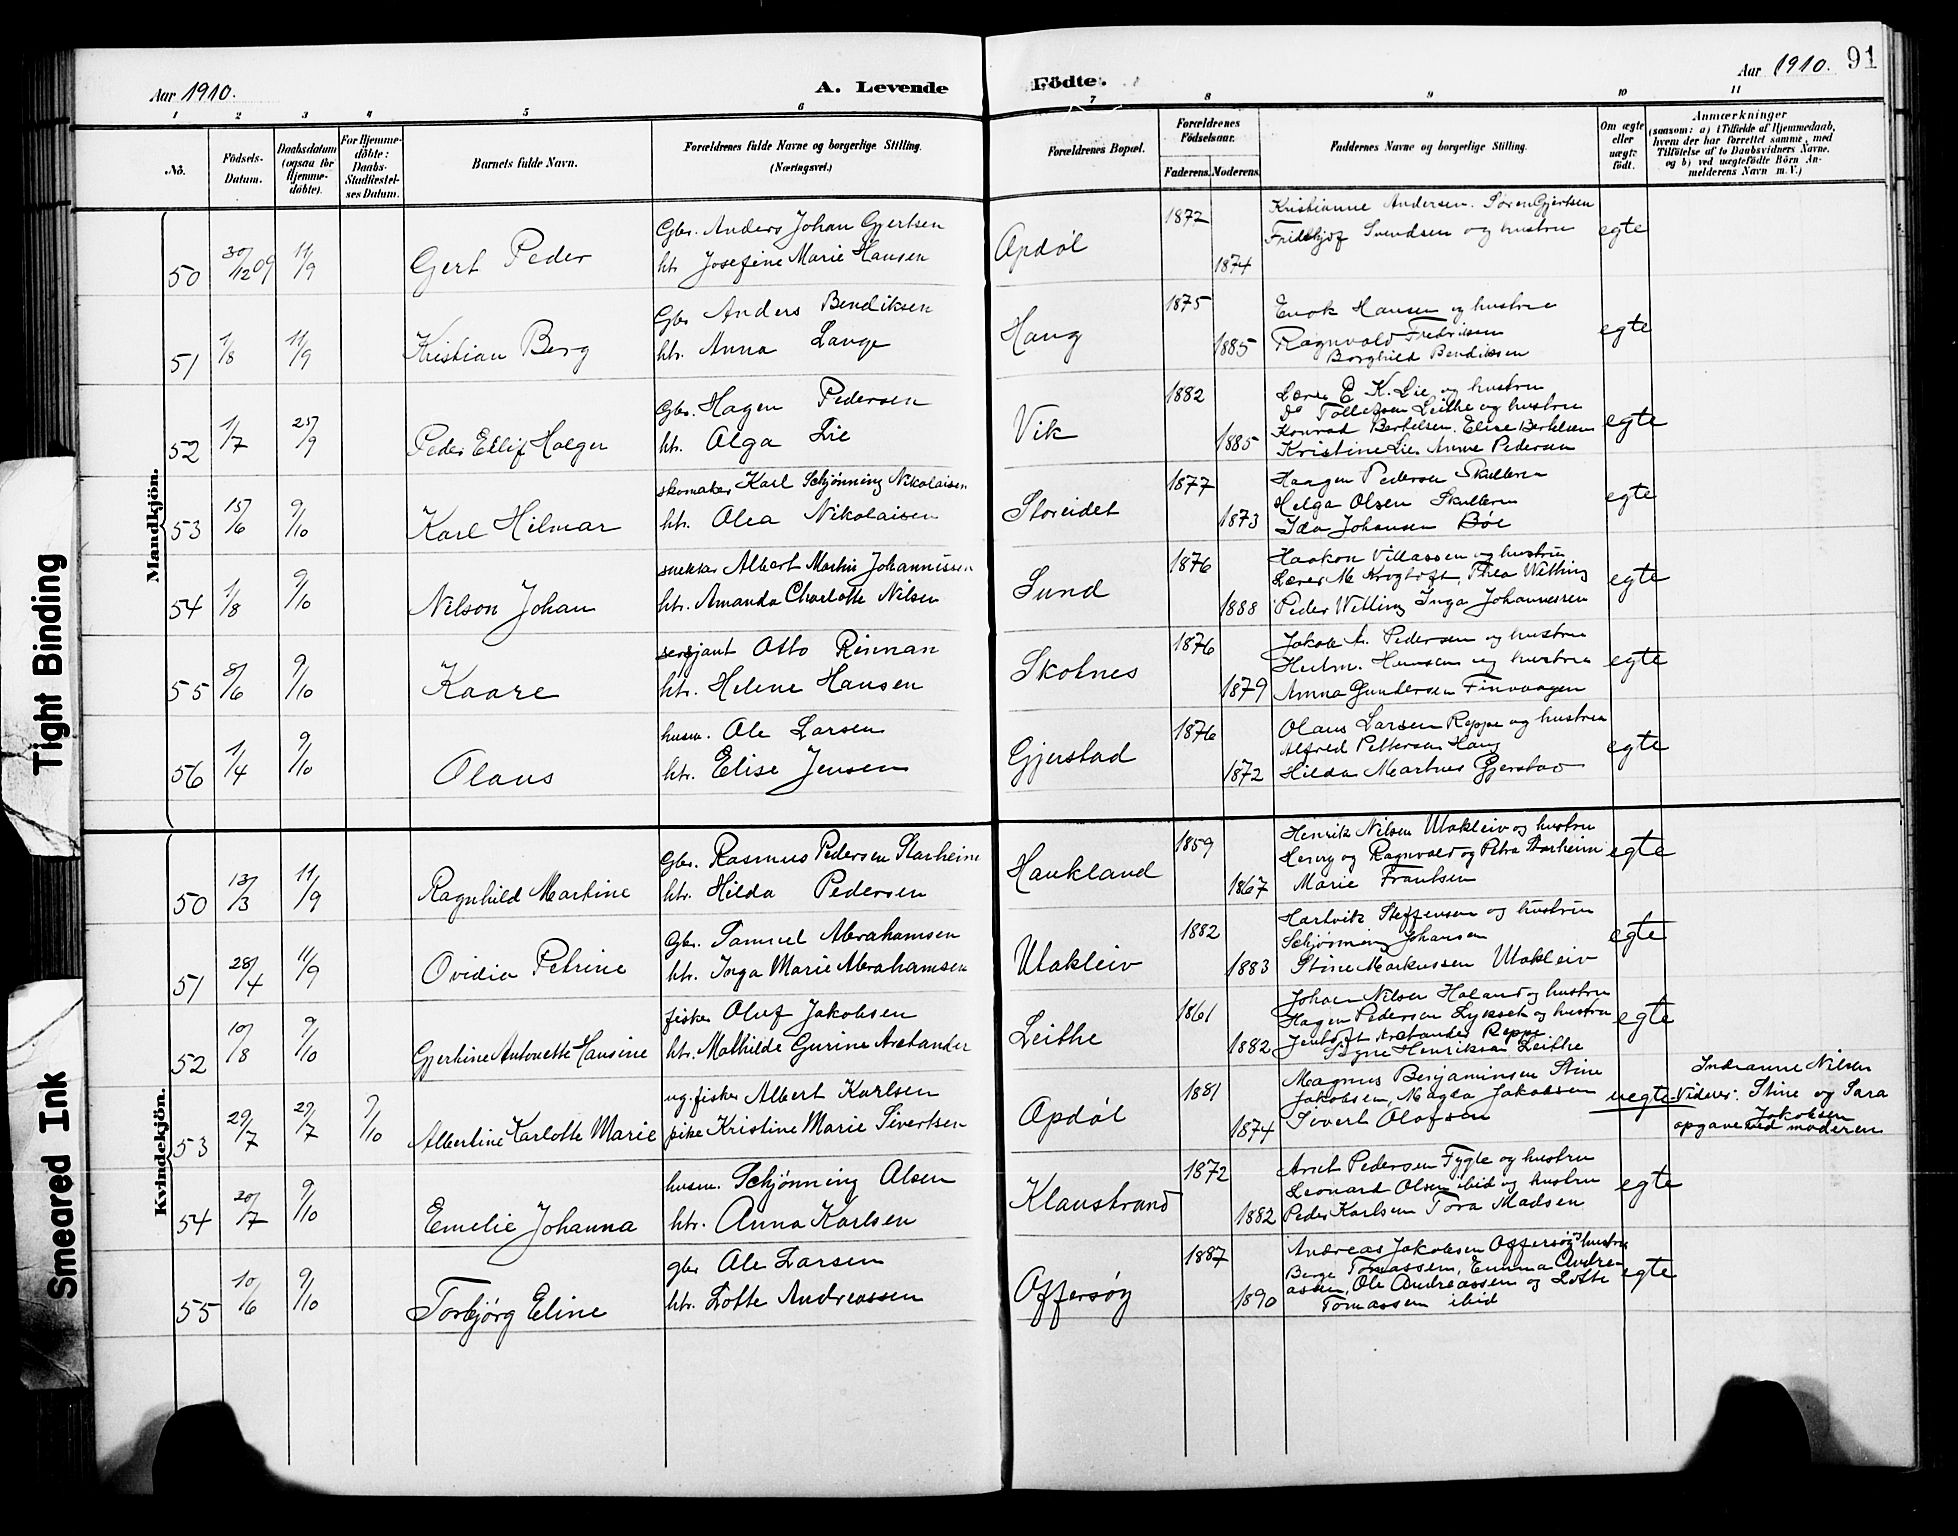 Aar 1910. A. Levende Födte. Aar 1910. 91
1 2 3 4 5 6 7 8 9 10 11
No.
Födsels-Datum.
Daabsdatum (ogsaa for Hjemme-döbte).
For Hjemme-döbte: Daabs-Stadfæstel-ses Datum.
Barnets fulde Navn.
Forældrenes fulde Navne og borgerlige Stilling. (Næringsvei.)
Forældrenes Bopæl.
Forældrenes Födselsaar.
Faderens. Moderens.
Faddernes Navne og borgerlige Stilling.
Om ægte eller uægte födt.
Anmærkninger
(saasom: a) i Tilfælde af Hjemmedaab, hvem der har forrettet samme, med Tilföielse af to Daabsvidners Navne, og b) ved uægtefödte Börn An-melderens Navn m. V.)
Mandkjön.
50 30/12 09 11/9 Gert Peder
Gbr. Anders Johan Gjertsen
htr. Josefine Marie Hansen
Opdøl 1872 1874
Kristianne Andersen. Søren Gjertsen
Fridthjof Svendsen og hustru
egte
51 1/8 11/9 Kristian Berg
Gbr Anders Bendiksen
htr. Anna Lange
Haug 1875 1885
Enok Hansen og hustru
Ragnvald Fredriksen
Borghild Bendiksen
egte
52 1/7 25/9 Peder Ellif Holger
Gbr. Hagen Pedersen
htr. Olga Lie
Vik 1882 1885
Lærer E. K. Lie og hustru
do Tollefsen Leithe og hustru
Konrad Bertelsen. Elise Bertelsen
Kristine Lie. Anne Pedersen
egte
53 15/6 9/10 Karl Hilmar
skomaker Karl Schjønning Nikolaisen
htr. Olea Nikolaisen
Storeidet 1877 1873
Haagen Pedersen Skulbru
Helga Olsen Skulbru
Ida Johansen Bøe
egte
54 1/8 9/10 Nilson Johan
snekker Albert Martin Johannissen
htr. Amanda Charlotte Nilsen
Sund 1876 1888
Haakon Villassen og hustru
Lærer M. Krogtoft, Thea Wetting
Peder Wetting Inga Johannessen
egte
55 8/6 9/10 Kaare
sersjant Otto Rinnan
htr. Helene Hansen
Skotnes 1876 1879
Jakob A. Pedersen og hustru
Hansen og hustru
Anna Gundersen Finvaagen
egte
56 1/4 9/10 Olaus
husm. Ole Larsen
htr. Elise Jensen
Gjerstad 1876 1872
Olaus Larsen Reppe og hustru
Alfred Pettersen Haug
Hilda Martines Gjerstad
egte
Kvindekjön.
50 13/3 11/9 Ragnhild Martine
Gbr. Rasmus Pedersen Starheim
htr. Hilda Pedersen
Haukland 1859 1867
Henrik Nilsen Utakleiv og hustru
Henry og Ragnvald og Petra Starheim
Marie Frantsen
egte
51 28/4 11/9 Ovidia Petrine
Gbr. Samuel Abrahamsen
htr. Inga Marie Abrahamsen
Utakleiv 1882 1883
Hartvik Steffensen og hustru
Schjønning Johansen
Stine Markussen Utakleiv
egte
52 10/8 9/10 Gjertine Antonette Hansine
fisker Oluf Jakobsen
htr. Mathilde Gurine Arctander
Leithe 1861 1882
Johan Nilsen Holand og hustru
Hagen Pedersen og hustru
Jentoft Arctander Reppe
Signe Henriksen Leithe
egte
53 29/7 29/7 9/10 Albertine Karlotte Marie
ug. fisker Albert Karlsen
pike Kristine Marie Sivertsen
Opdøl 1881 1874
Magnus Benjaminsen Stine
Jakobsen, Magda Jakobsen
Sivert Olafsen
uegte
Indianne Nilsen
Vidner: Stine og Sara
Jakobsen
opgave ved moderen
54 20/7 9/10 Emelie Johanna
husm. Schjønning Olsen
htr. Anna Karlsen
Klaustrand 1872 1882
Arnt Pedersen Fygle og hustru
Leonard Olsen ibid og hustru
Peder Karlsen Tora Madsen
egte
55 10/6 9/10 Torbjørg Eline
gbr Ole Larsen
htr. Lotte Andreassen
Offersøy 1887 1890
Andreas Jakobsen Offersøy & hustru
Berge Tomassen, Emma Andre-
assen, Ole Andreassen og Lotte
Tomassen ibid
egte
Tight Binding
Smeared Ink